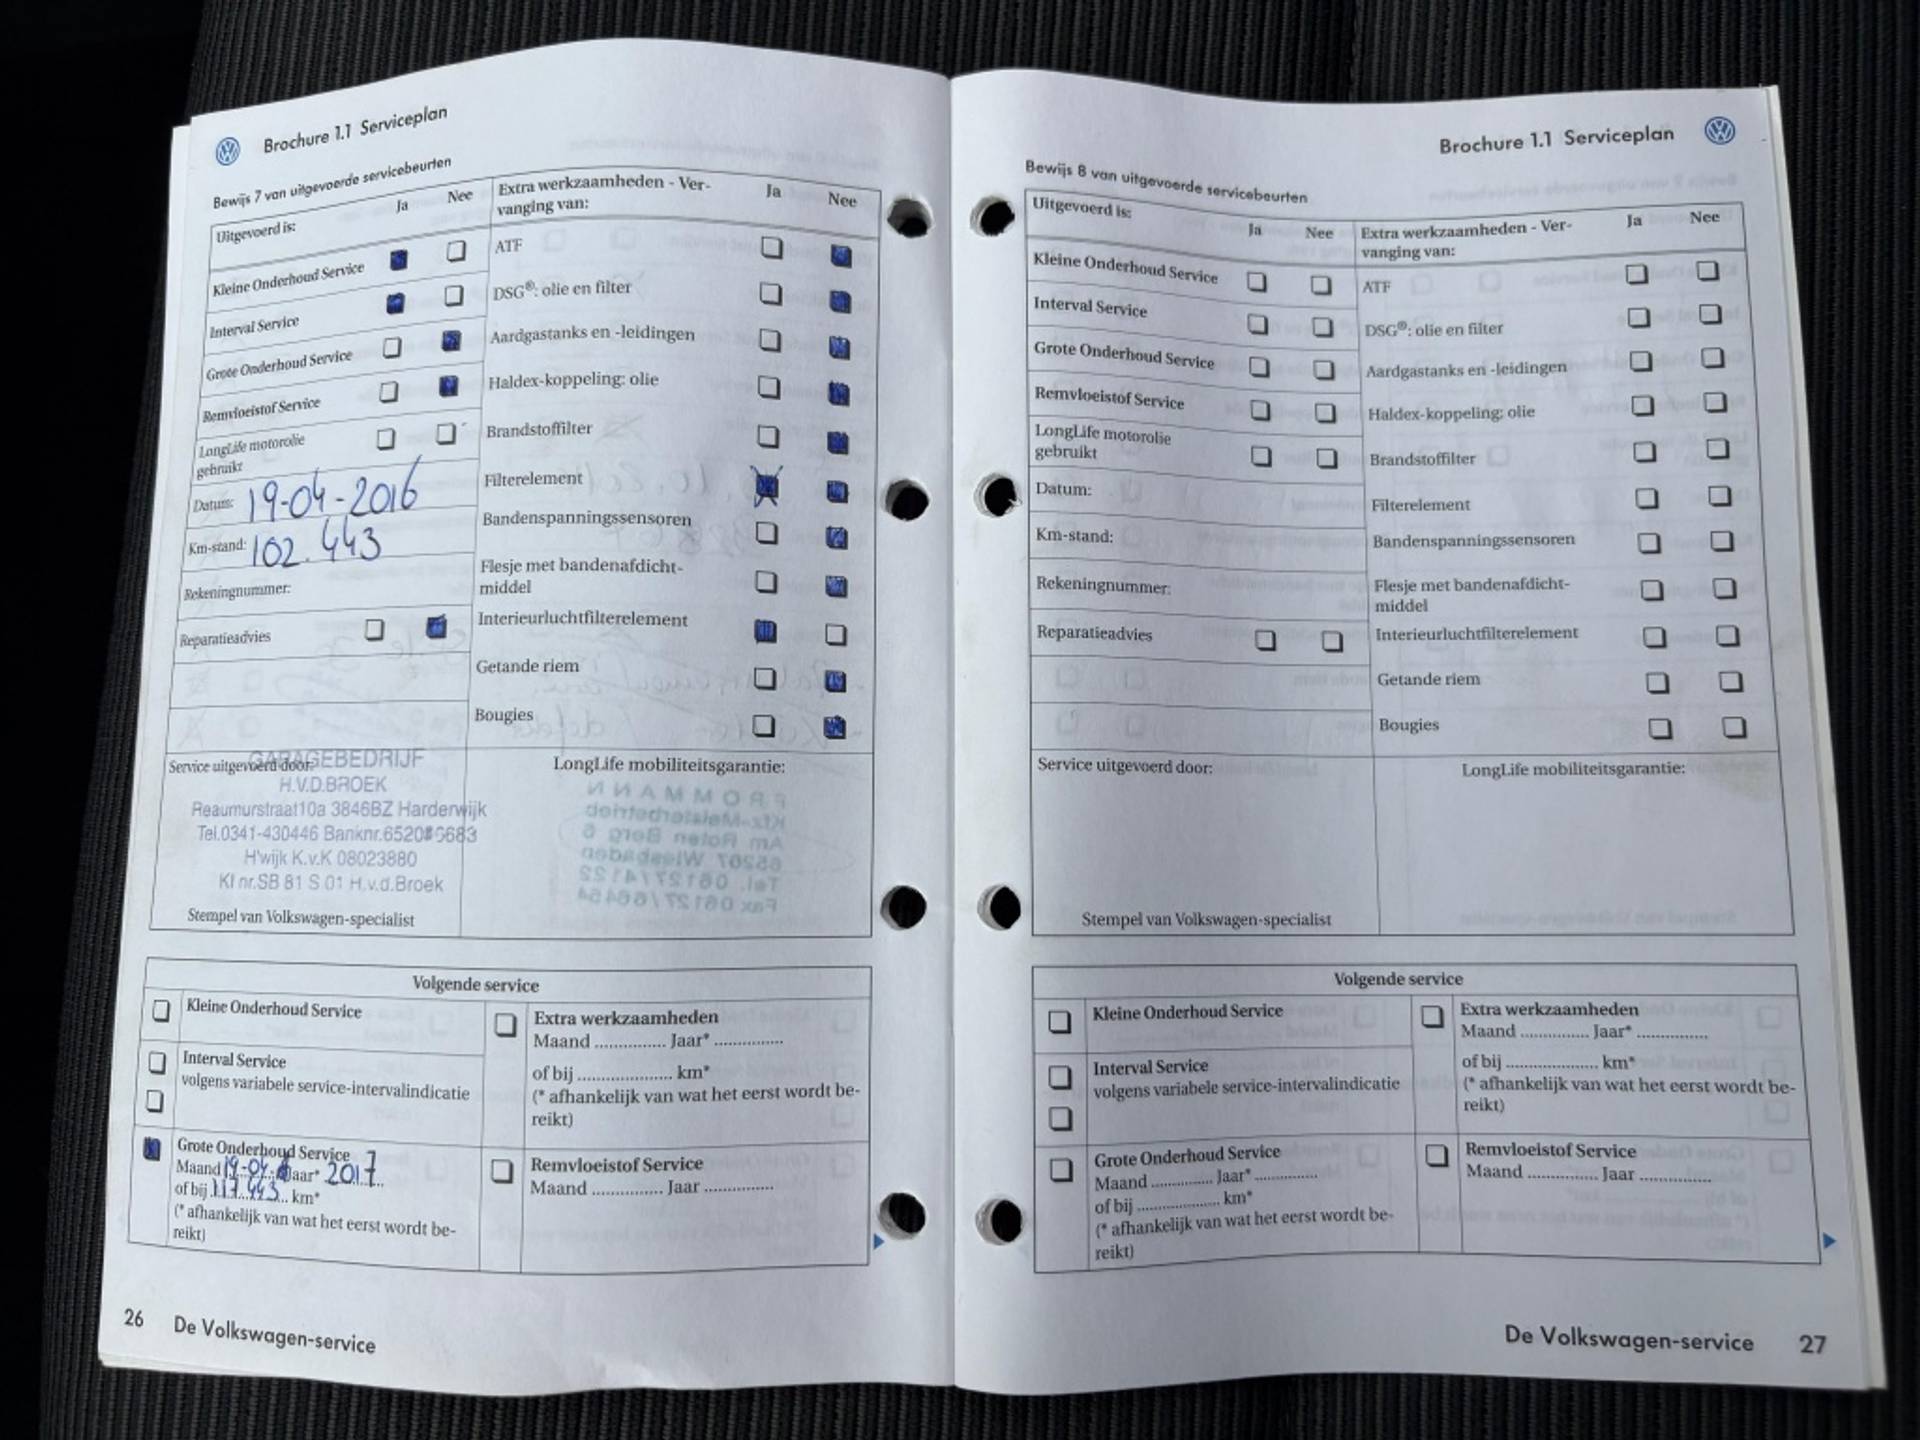 Brochure 1.1 Serviceplan
Bewijs 7 van uitgevoerde servicebeurten
Uitgevoerd is:
Ja
Nee
Kleine Onderhoud Service
Interval Service
Grote Onderhoud Service
Remvloeistof Service
LongLife motorolie
gebruikt
Datum: 19-04-2016
Km-stand: 102.443
Rekeningnummer:
Reparatieadvies
Extra werkzaamheden - Ver-
vanging van:
Ja
Nee
ATF
DSG®: olie en filter
Aardgastanks en -leidingen
Haldex-koppeling: olie
Brandstoffilter
Filterelement
Bandenspanningssensoren
Flesje met bandenafdicht-
middel
Interieurluchtfilterelement
Getande riem
Bougies
Service uitgevoerd door:
GARAGEBEDRIJF
H.V.D.BROEK
Reaumurstraat10a 3846BZ Harderwijk
Tel.0341-430446 Banknr.
H'wijk K.v.K 08023880
KI nr.SB 81 S 01 H.v.d.Broek
Stempel van Volkswagen-specialist
LongLife mobiliteitsgarantie:
Volgende service
Kleine Onderhoud Service
Interval Service
volgens variabele service-intervalindicatie
Grote Onderhoud Service
Maand 19-04 Jaar* 2017
of bij 117.443 km*
(* afhankelijk van wat het eerst wordt be-
reikt)
Extra werkzaamheden
Maand ............... Jaar* ...............
of bij ..................... km*
(* afhankelijk van wat het eerst wordt be-
reikt)
Remvloeistof Service
Maand ............... Jaar ...............
26 De Volkswagen-service
Brochure 1.1 Serviceplan
Bewijs 8 van uitgevoerde servicebeurten
Uitgevoerd is:
Ja
Nee
Kleine Onderhoud Service
Interval Service
Grote Onderhoud Service
Remvloeistof Service
LongLife motorolie
gebruikt
Datum:
Km-stand:
Rekeningnummer:
Reparatieadvies
Extra werkzaamheden - Ver-
vanging van:
Ja
Nee
ATF
DSG®: olie en filter
Aardgastanks en -leidingen
Haldex-koppeling: olie
Brandstoffilter
Filterelement
Bandenspanningssensoren
Flesje met bandenafdicht-
middel
Interieurluchtfilterelement
Getande riem
Bougies
Service uitgevoerd door:
Stempel van Volkswagen-specialist
LongLife mobiliteitsgarantie:
Volgende service
Kleine Onderhoud Service
Interval Service
volgens variabele service-intervalindicatie
Grote Onderhoud Service
Maand .............. Jaar* ..............
of bij .................... km*
(* afhankelijk van wat het eerst wordt be-
reikt)
Extra werkzaamheden
Maand ............... Jaar* ...............
of bij ..................... km*
(* afhankelijk van wat het eerst wordt be-
reikt)
Remvloeistof Service
Maand ............... Jaar ...............
De Volkswagen-service 27